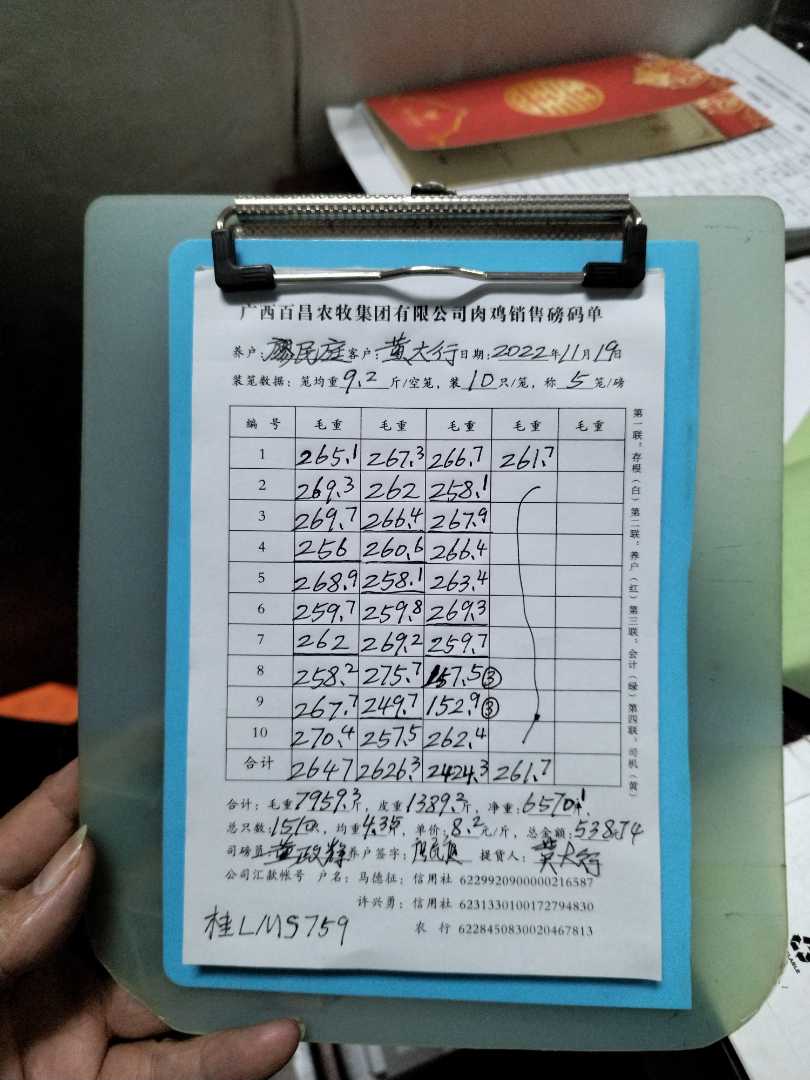 广西百昌农牧集团有限公司肉鸡销售磅码单
养户:廖民庭客户:黄大行日期:2022年11月19日
装笼数据:笼均重9.2斤/空笼,装10只/笼,称5笼/磅
编号 毛重 毛重 毛重 毛重 毛重
1 265.1 267.3 266.7 261.7
2 269.3 262 258.1
3 269.7 266.4 267.9
4 256 260.6 266.4
5 268.9 258.1 263.4
6 259.7 259.8 269.3
7 262 269.2 259.7
8 258.2 275.7 157.5③
9 267.7 249.7 152.9③
10 270.4 257.5 262.4
合计 2647 2626.3 2424.3 261.7
第一联:存根(白)第二联:养户(红)第三联:会计(绿)第四联:司机(黄)
合计:毛重7959.3斤,皮重1389.2斤,净重:6570.1
总只数:1510只,均重4.35斤,单价:8.2元/斤,总金额:
司磅员: 养户签字: 提货人:黄大行
公司汇款帐号 户名:马德征:信用社 6229920900000216587
许兴勇:信用社 6231330100172794830
农行 6228450830020467813
桂LM5759